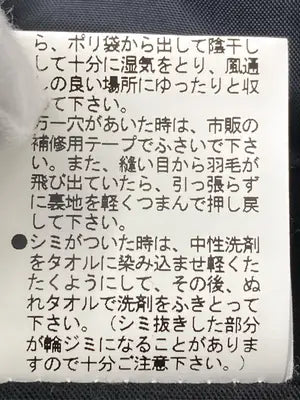 ら、ポリ袋から出して陰干し
して十分に湿気をとり、風通
しの良い場所にゆったりと収
して下さい。
万一穴があいた時は、市販の
補修用テープでふさいで下さ
い。また、縫い目から羽毛が
飛び出ていたら、引っ張らず
に裏地を軽くつまんで押し戻
して下さい。
●シミがついた時は、中性洗剤
をタオルに染み込ませ軽くた
たくようにして、その後、ぬ
れタオルで洗剤をふきとって
下さい。（シミ抜きした部分
が輪ジミになることがありま
すので十分ご注意下さい。）